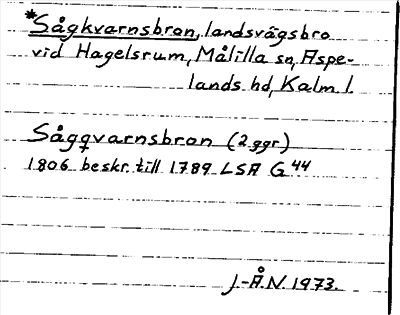 *Sågkvarnsbron, landsvägsbro
vid Hagelsrum, Målilla sn, Aspe-
lands hd, Kalm l.
Sågqvarnsbron (2 ggr)
1806 beskr. till 1789 LSA G 44
J-Å.N. 1973.